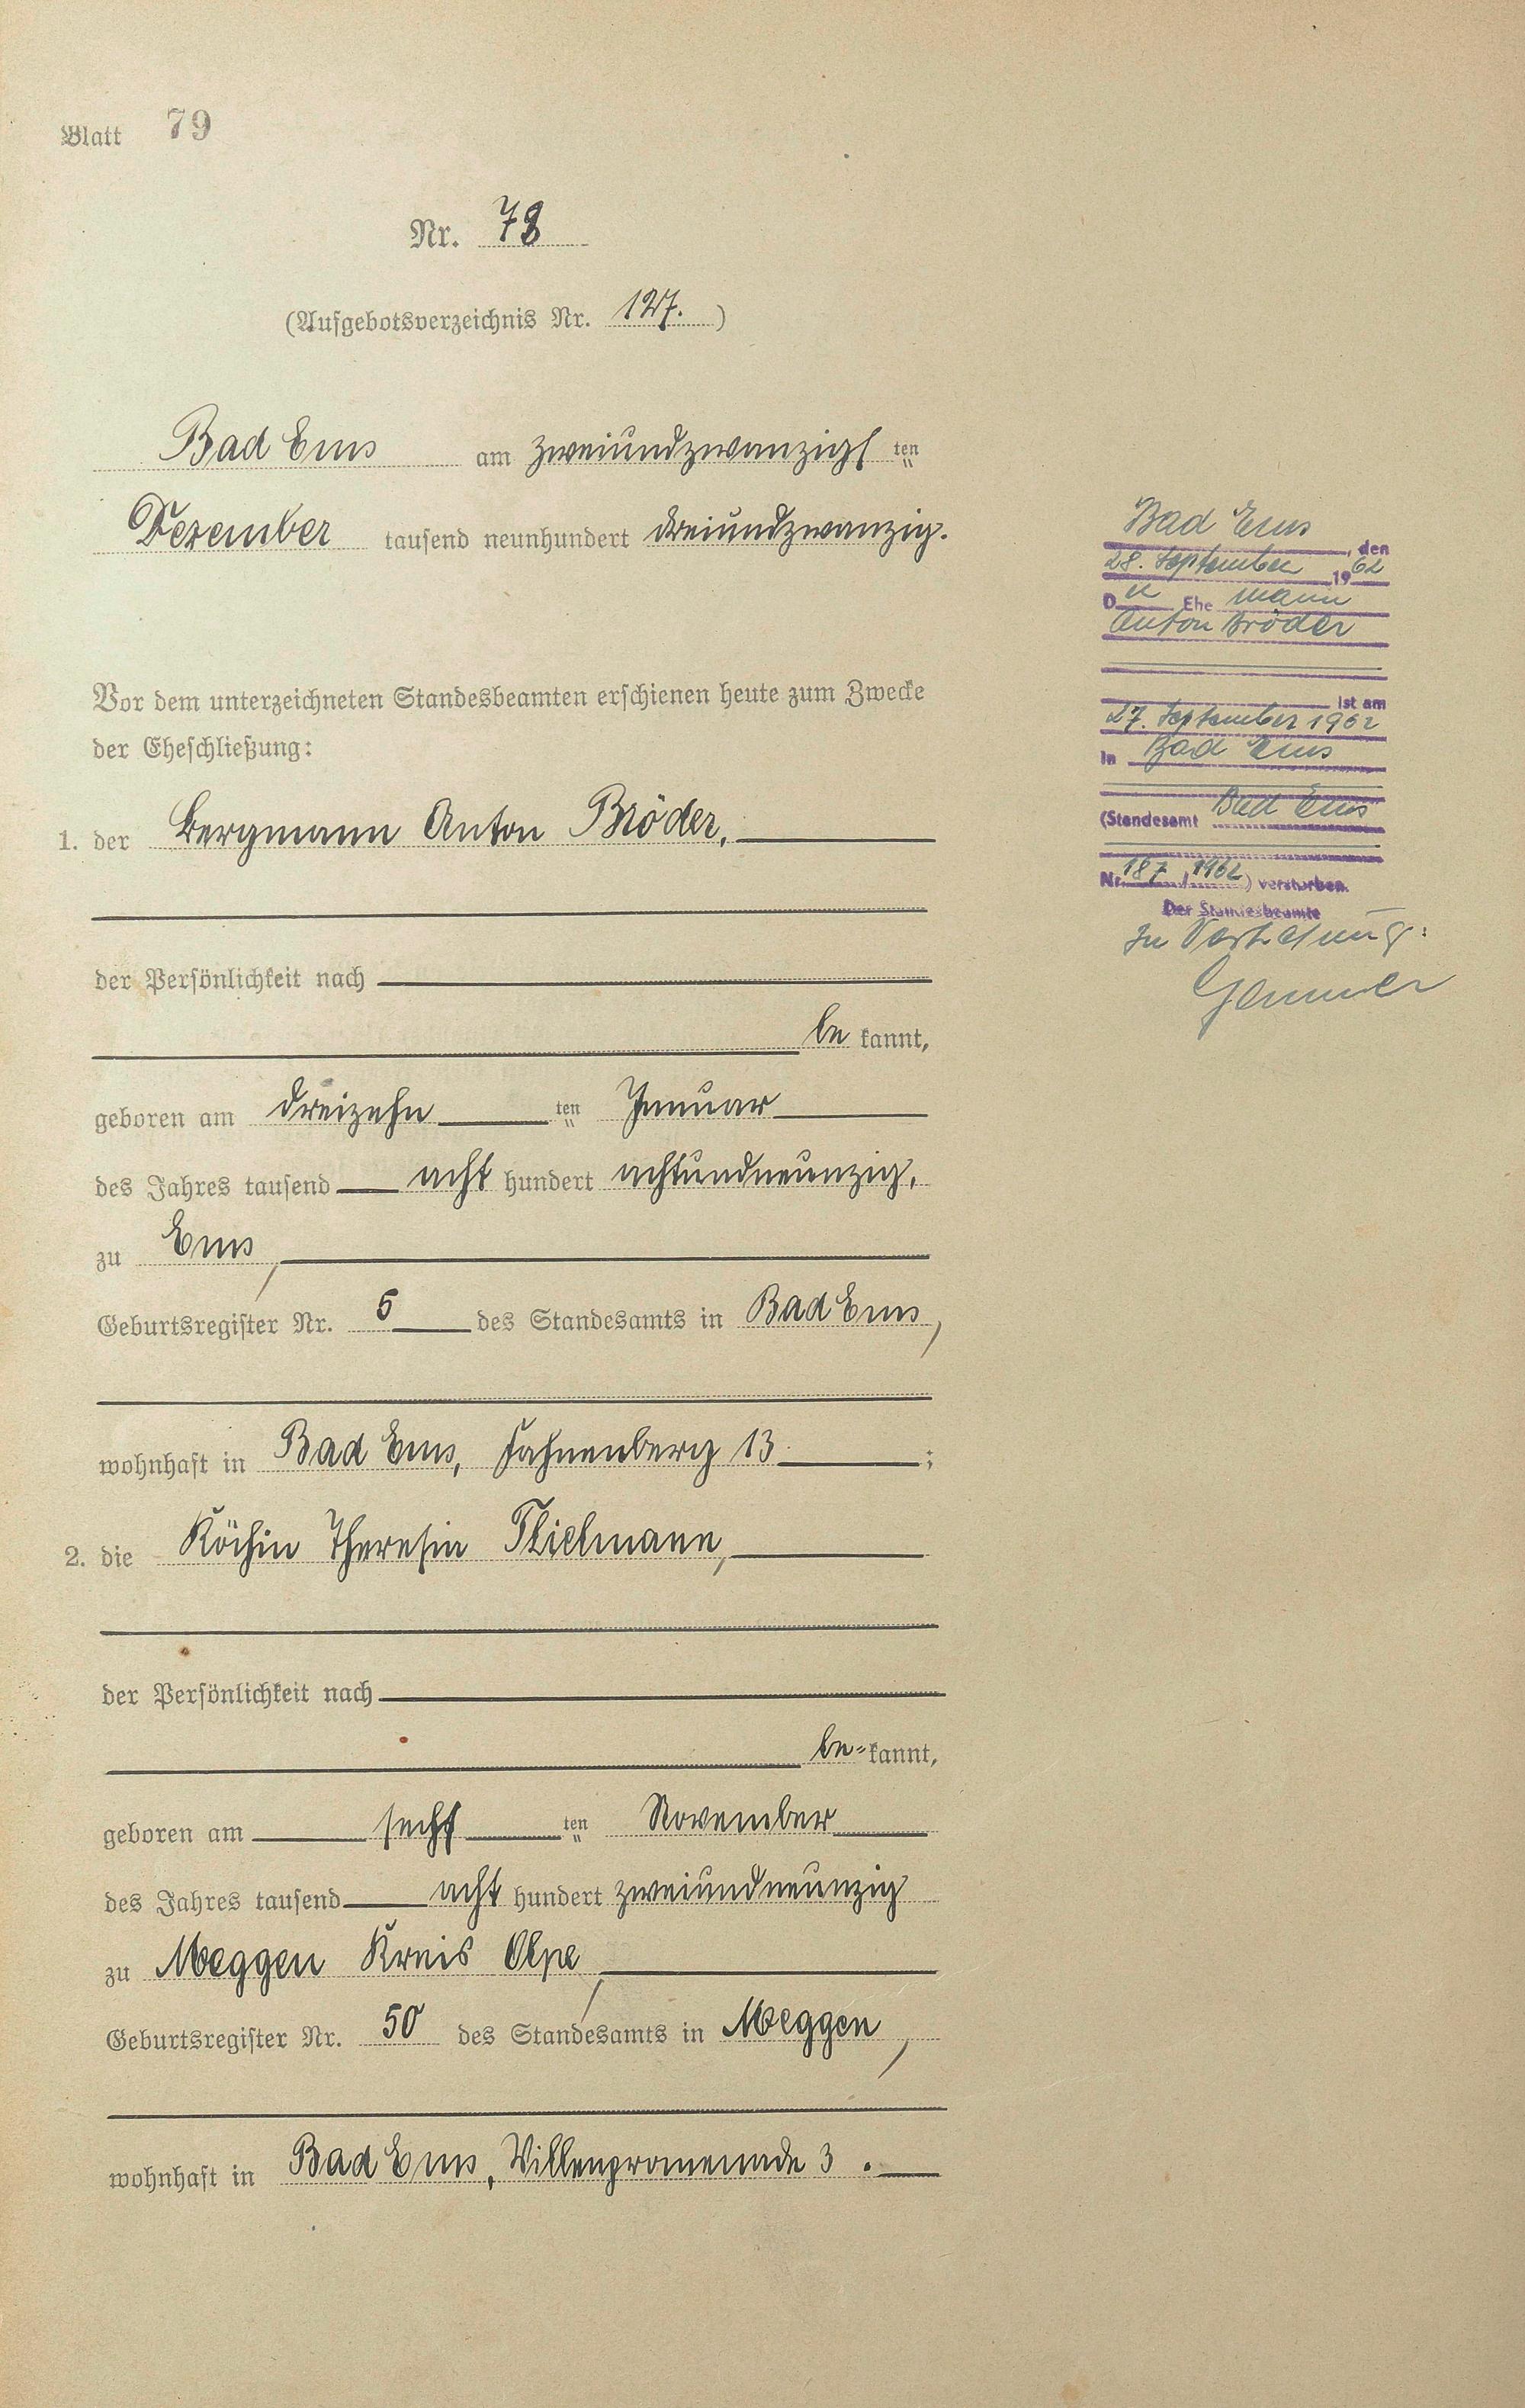 Blatt 79
Nr. 78
(Aufgebotsverzeichnis Nr. 127.)
Bad Ems am zweiundzwanzigs ten
Dezember tausend neunhundert dreiundzwanzig.
Vor dem unterzeichneten Standesbeamten erschienen heute zum Zwecke
der Eheschließung:
1. der Bergmann Anton Bröder,
der Persönlichkeit nach
be kannt,
geboren am dreizehn ten Januar
des Jahres tausend acht hundert achtundneunzig,
zu Ems,
Geburtsregister Nr. 5 des Standesamts in Bad Ems,
wohnhaft in Bad Ems, Fahnenberg 13 ;
2. die Köchin Theresia Thielmann,
der Persönlichkeit nach
be= kannt,
geboren am sechs ten November
des Jahres tausend acht hundert zweiundneunzig
zu Meggen Kreis Olpe,
Geburtsregister Nr. 50 des Standesamts in Meggen,
wohnhaft in Bad Ems, Villenpromenade 3.
Bad Ems, den
28. September 1962
Der Ehemann
Anton Bröder
ist am
27. September 1962
in Bad Ems
(Standesamt Bad Ems
Nr. 187/1962) verstorben.
Der Standesbeamte
In Vertretung: